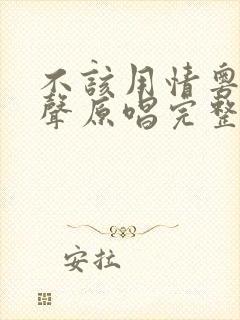 不該用情粵
聲原唱完整
安拉